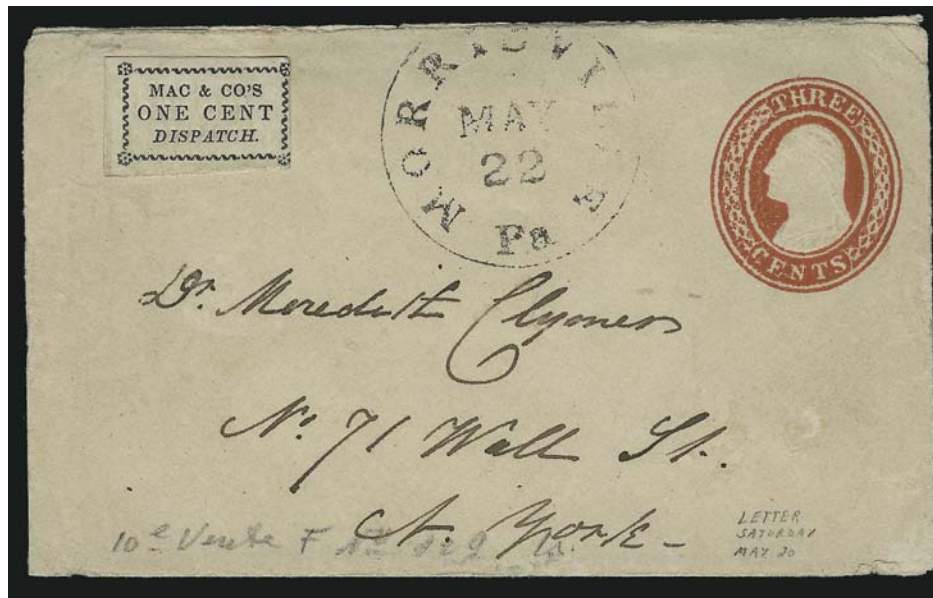 MAC & CO'S
ONE CENT
DISPATCH.
MORRISVILLE
MAY
22
Pa
THREE
CENTS
Dr. Meredith Clymer
No. 71 Wall St.
N. York
10e Vente F
LETTER
SATURDAY
MAY 20